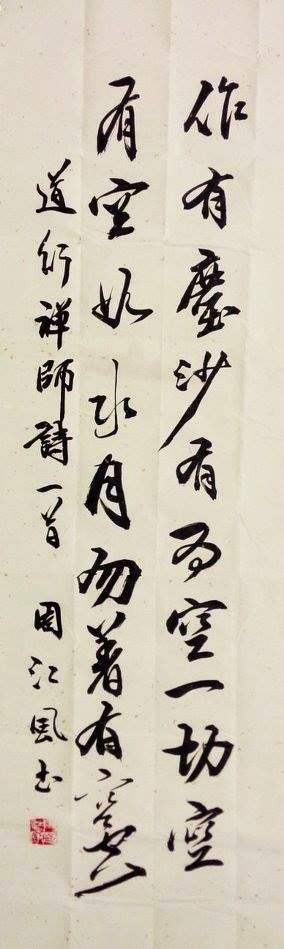 作有塵沙有為空一切空
有空如水月勿著有空空
道行禪師詩一首 周江風书